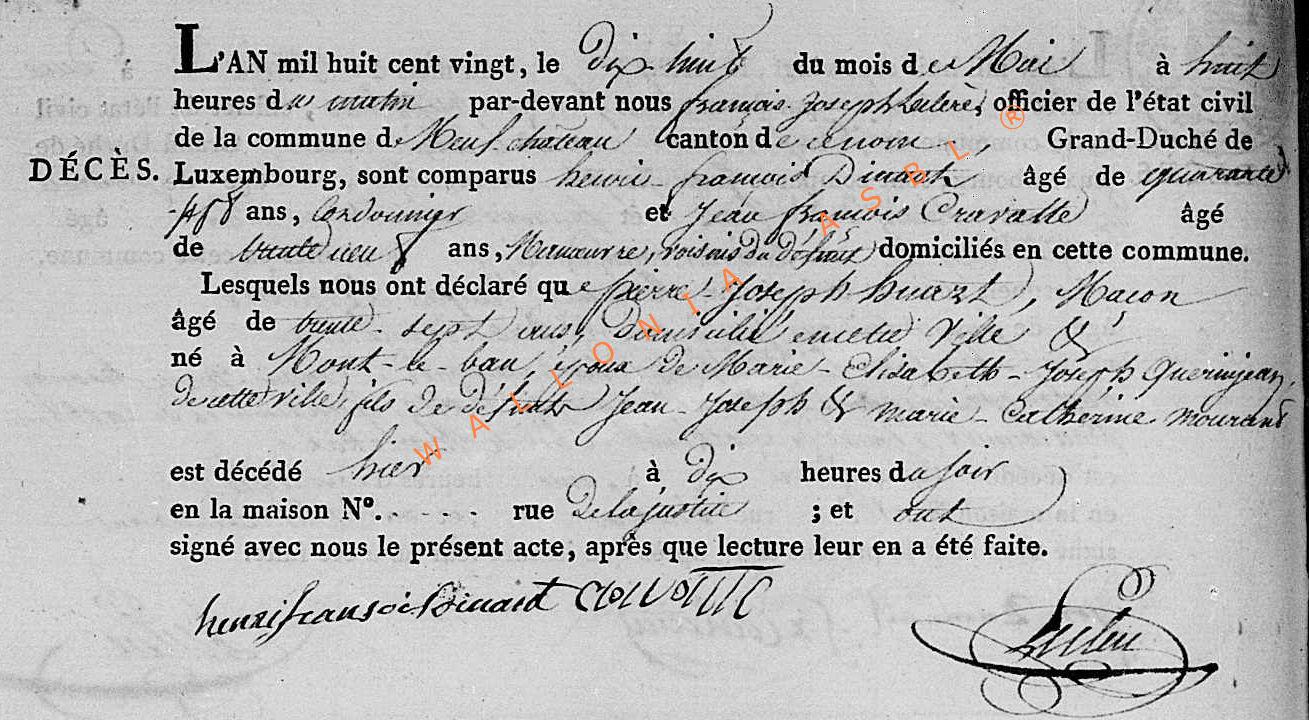 L'AN mil huit cent vingt, le dix huit du mois de Mai à huit
heures du matin par-devant nous françois Joseph officier de l'état civil
de la commune de Neufchâteau canton de Grand-Duché de
DÉCÈS. Luxembourg, sont comparus henri françois Dinant âgé de quarante
ans, Cordonnier et Jean françois Cravatte âgé
de trente neuf ans, Manœuvre, voisins du défunt domiciliés en cette commune.
Lesquels nous ont déclaré que pierre Joseph huart, Macon
âgé de trente sept ans, domicilié en cette Ville &
né à Mont-le-ban, époux de Marie-Elisabeth-Joseph Queringean,
de cette ville, fils de défunts Jean-Joseph & marie-Catherine mourand
est décédé hier à dix heures du soir
en la maison N°. ..... rue de la justice ; et ont
signé avec nous le présent acte, après que lecture leur en a été faite.
henri fransoi Dinant
WALLONIA ASBL ®